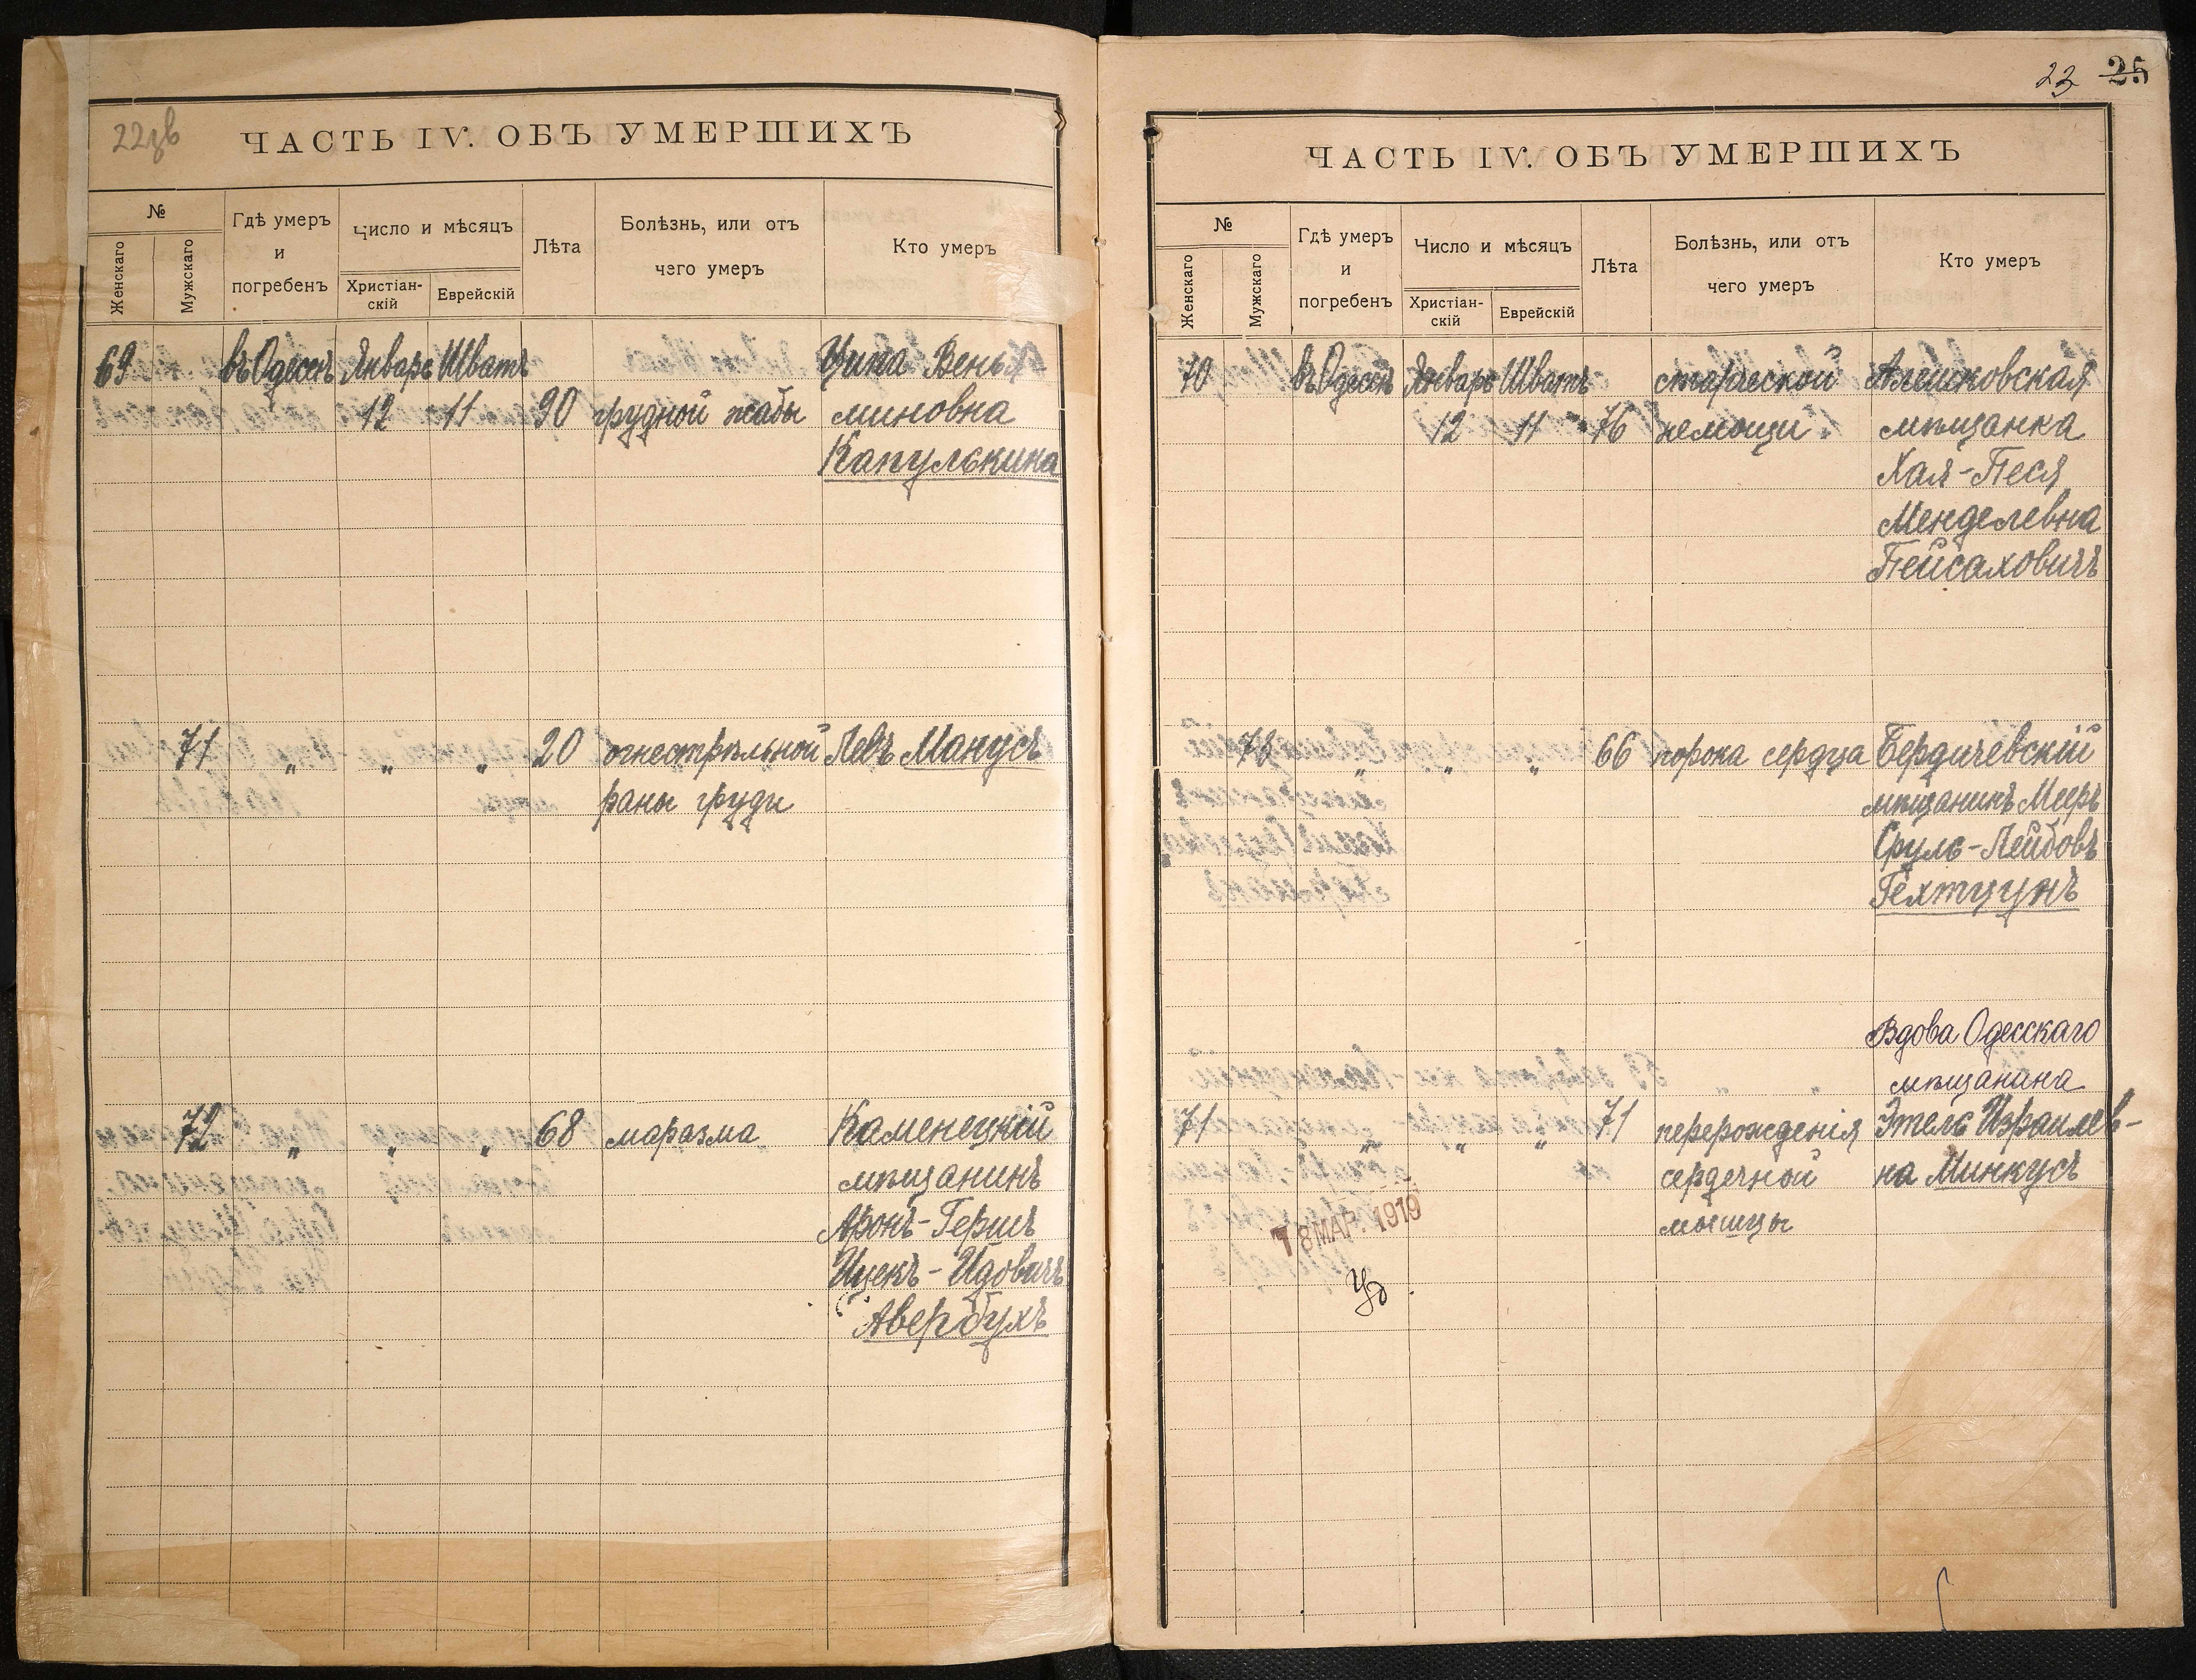 22 зв
ЧАСТЬ IV. ОБЪ УМЕРШИХЪ
№
Женскаго
Мужскаго
Гдѣ умеръ
и
погребенъ
Число и мѣсяцъ
Христіан-
скій
Еврейскій
Лѣта
Болѣзнь, или отъ
чего умеръ
Кто умеръ
69 въ Одессѣ Январь Шватъ Ципа Венья
12 11 90 грудной жабы миновна
Капулькина
71 „ „ „ 20 огнестрѣльной Левъ Манусъ
раны груди
72 „ „ „ 68 маразма Каменецкій
мѣщанинъ
Аронъ-Гершъ
Ицекъ-Идовичъ
Авербухъ
23 25
ЧАСТЬ IV. ОБЪ УМЕРШИХЪ
№
Женскаго
Мужскаго
Гдѣ умеръ
и
погребенъ
Число и мѣсяцъ
Христіан-
скій
Еврейскій
Лѣта
Болѣзнь, или отъ
чего умеръ
Кто умеръ
70 въ Одессѣ Январь Шватъ старческой Алешковская
12 11 76 немощи мѣщанка
Хая-Песя
Менделевна
Пейсаховичъ
73 „ „ „ 66 порока сердца Бердичевскій
мѣщанинъ Мееръ
Сруль-Лейбовъ
Гехтцунъ
Вдова Одесскаго
мѣщанина
71 „ „ „ 71 перерожденія Этель Израилев-
сердечной на Минкусъ
мышцы
18 МАР. 1919